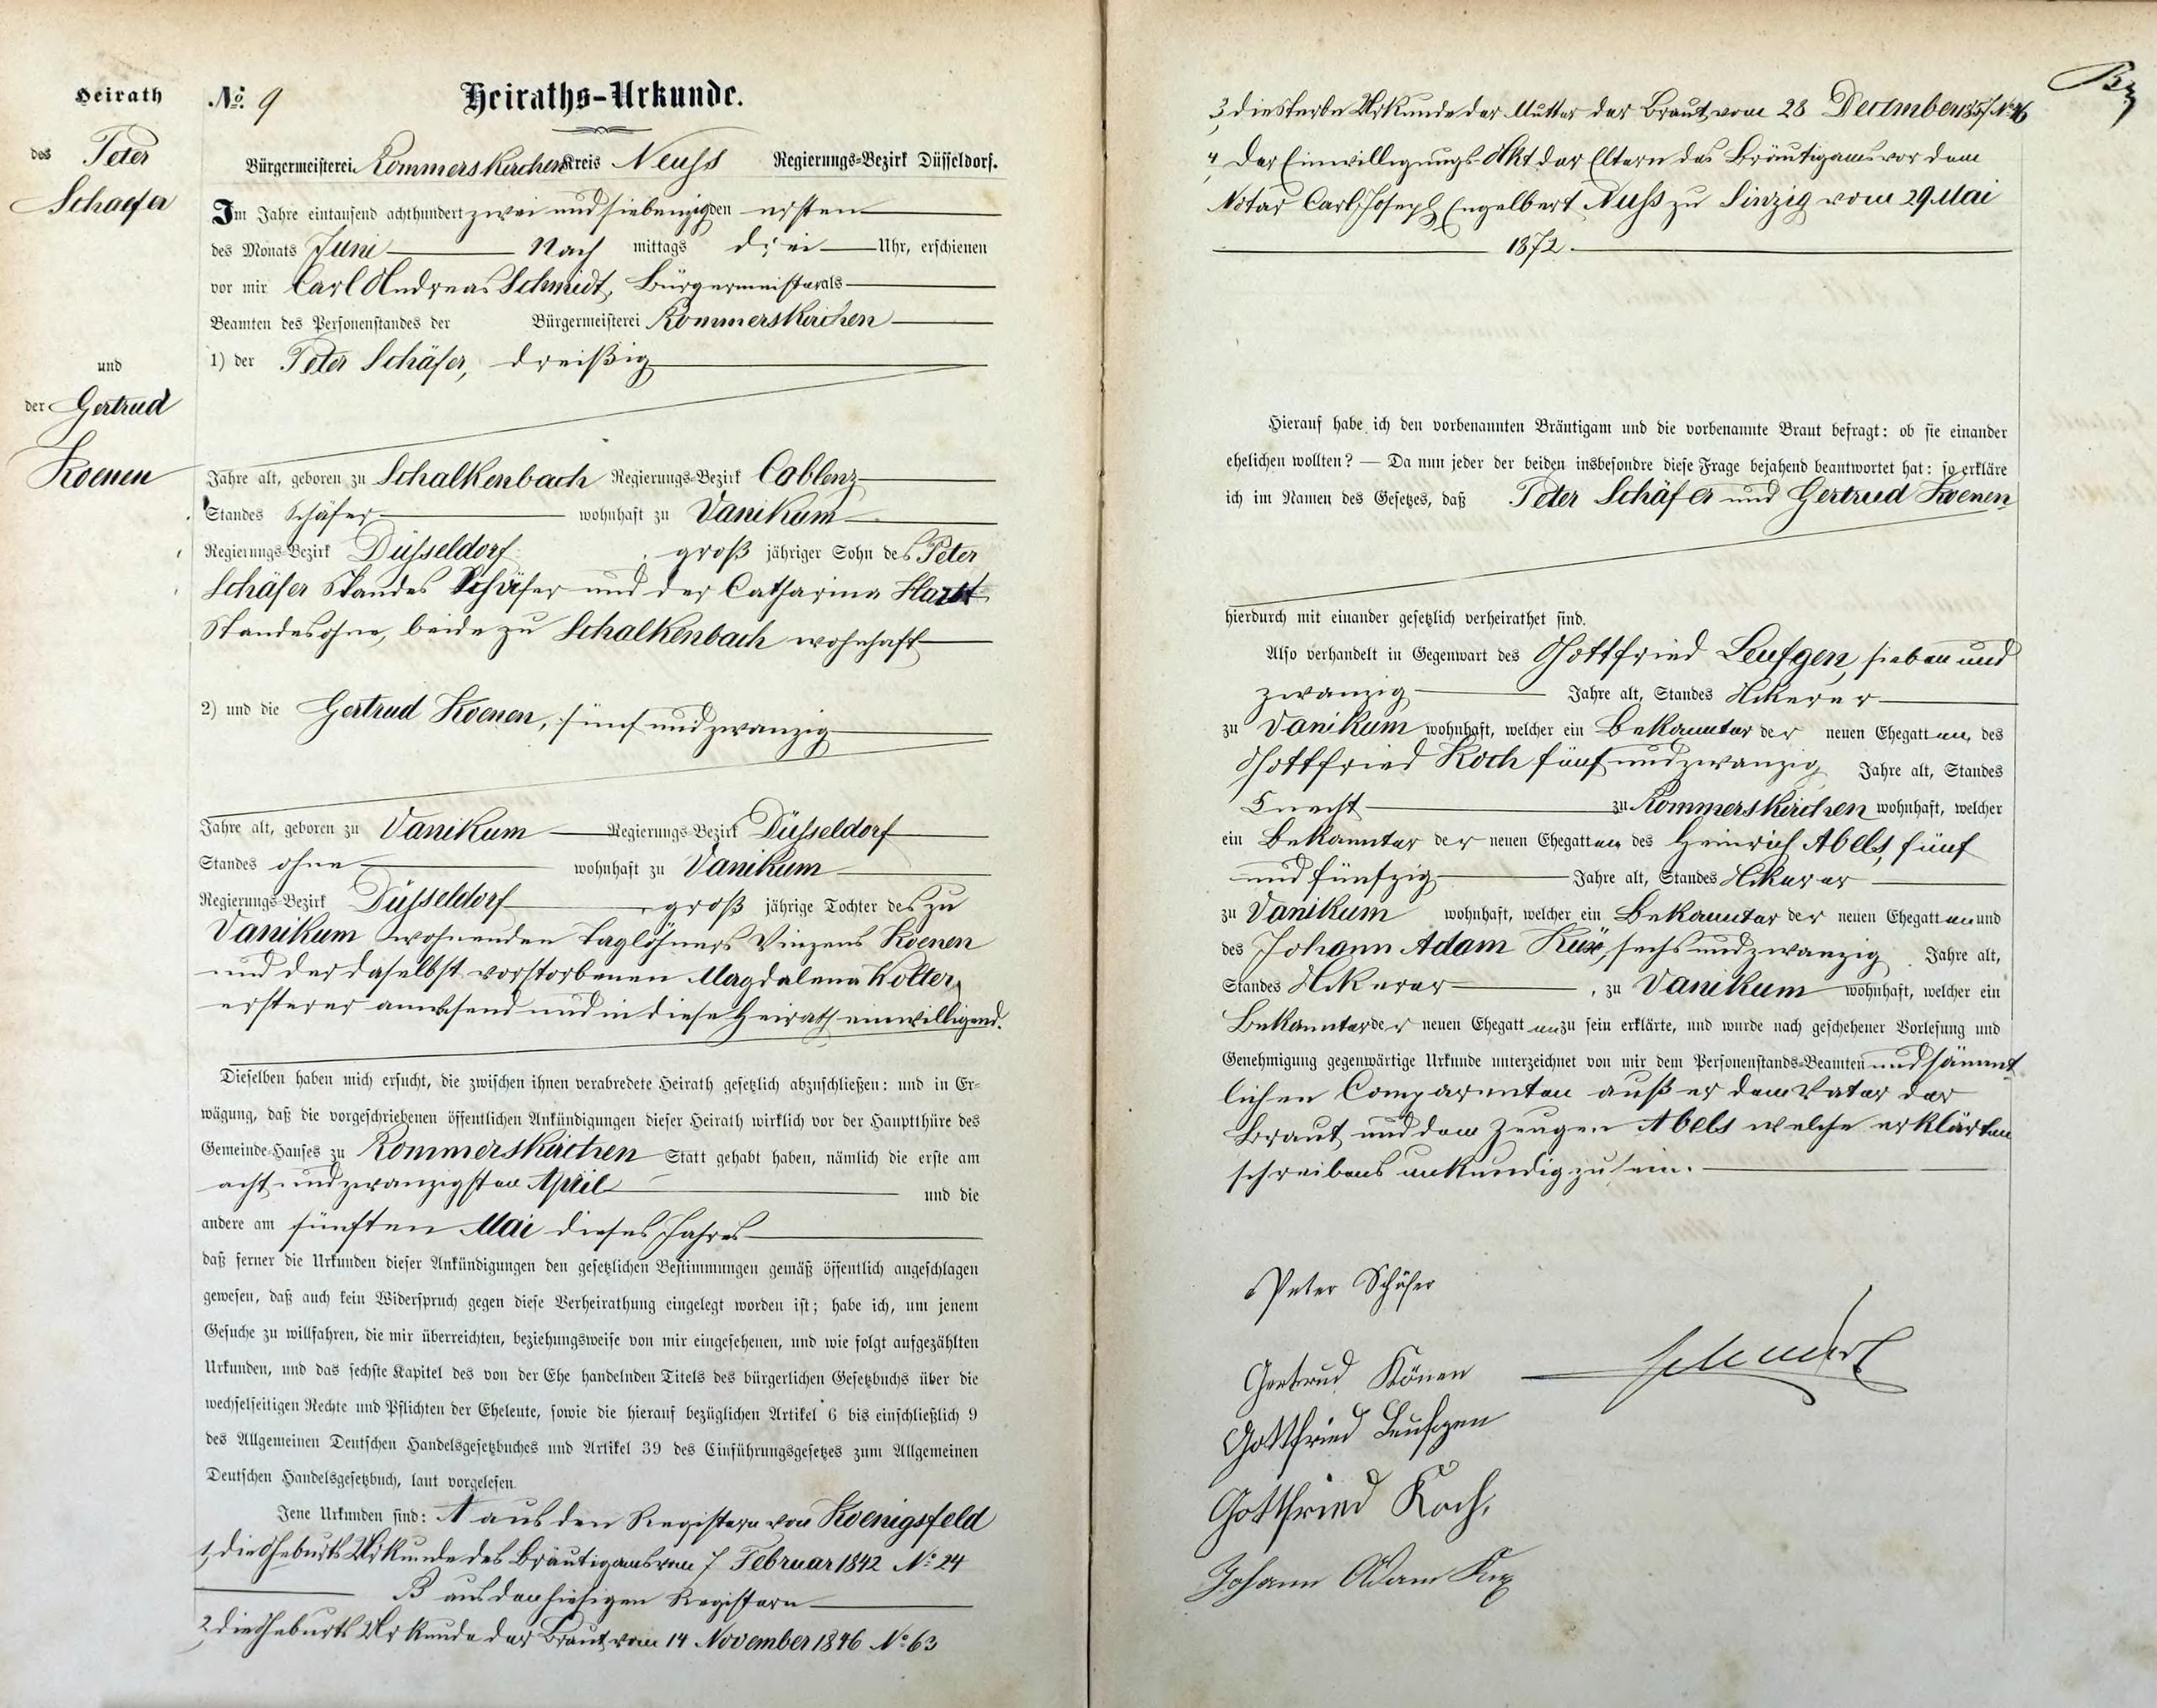 Heirath
des Peter
Schaefer
und
der Gertrud
Koenen
No. 9 Heiraths-Urkunde.
Bürgermeisterei Rommerskirchen Kreis Neuss Regierungs-Bezirk Düsseldorf.
Im Jahre eintausend achthundert zwei und siebenzig den ersten
des Monats Juni Nach mittags drei Uhr, erschienen
vor mir Carl Andreas Schmidt, Bürgermeister als
Beamten des Personenstandes der Bürgermeisterei Rommerskirchen
1) der Peter Schäfer, dreißig
Jahre alt, geboren zu Schalkenbach Regierungs-Bezirk Coblenz
Standes Schäfer wohnhaft zu Vanikum
Regierungs-Bezirk Düsseldorf groß jähriger Sohn des Peter
Schäfer Standes Schäfer und der Catharina
Standes ohne, beide zu Schalkenbach wohnhaft
2) und die Gertrud Koenen, fünf und zwanzig
Jahre alt, geboren zu Vanikum Regierungs-Bezirk Düsseldorf
Standes ohne wohnhaft zu Vanikum
Regierungs-Bezirk Düsseldorf groß jährige Tochter des zu
Vanikum wohnenden Taglöhners Vinzens Koenen
und der daselbst verstorbenen Magdalena Kolter,
ersterer anwesend und in diese Heirath einwilligend.
Dieselben haben mich ersucht, die zwischen ihnen verabredete Heirath gesetzlich abzuschließen: und in Er-
wägung, daß die vorgeschriebenen öffentlichen Ankündigungen dieser Heirath wirklich vor der Hauptthüre des
Gemeinde-Hauses zu Rommerskirchen Statt gehabt haben, nämlich die erste am
acht und zwanzigsten April und die
andere am fünften Mai dieses Jahres
daß ferner die Urkunden dieser Ankündigungen den gesetzlichen Bestimmungen gemäß öffentlich angeschlagen
gewesen, daß auch kein Widerspruch gegen diese Verheirathung eingelegt worden ist; habe ich, um jenem
Gesuche zu willfahren, die mir überreichten, beziehungsweise von mir eingesehenen, und wie folgt aufgezählten
Urkunden, und das sechste Kapitel des von der Ehe handelnden Titels des bürgerlichen Gesetzbuchs über die
wechselseitigen Rechte und Pflichten der Eheleute, sowie die hierauf bezüglichen Artikel 6 bis einschließlich 9
des Allgemeinen Deutschen Handelsgesetzbuches und Artikel 39 des Einführungsgesetzes zum Allgemeinen
Deutschen Handelsgesetzbuch, laut vorgelesen.
Jene Urkunden sind: A aus den Registern von Koenigsfeld
1, die Geburts Urkunde des Bräutigams vom 7 Februar 1842 No 24
B aus den hiesigen Registern
2, die Geburts Urkunde der Braut vom 14 November 1846 No 63
3, die Sterbe Urkunde der Mutter der Braut vom 28 December 1857 No
4, Der Einwilligungs-Akt der Eltern des Bräutigams vor dem
Notar Carl Joseph Engelbert Nuss zu Sinzig vom 29 Mai
1872.
Hierauf habe ich den vorbenannten Bräutigam und die vorbenannte Braut befragt: ob sie einander
ehelichen wollten? — Da nun jeder der beiden insbesondre diese Frage bejahend beantwortet hat: so erkläre
ich im Namen des Gesetzes, daß Peter Schäfer und Gertrud Koenen
hierdurch mit einander gesetzlich verheirathet sind.
Also verhandelt in Gegenwart des Gottfried Leufgen, sieben und
zwanzig Jahre alt, Standes Ackerer
zu Vanikum wohnhaft, welcher ein Bekannter der neuen Ehegatten, des
Gottfried Koch fünf und zwanzig Jahre alt, Standes
Knecht zu Rommerskirchen wohnhaft, welcher
ein Bekannter der neuen Ehegatten des Heinrich Abels, fünf
und fünfzig Jahre alt, Standes Ackerer
zu Vanikum wohnhaft, welcher ein Bekannter der neuen Ehegatten und
des Johann Adam Küx, sechs und zwanzig Jahre alt,
Standes Ackerer, zu Vanikum wohnhaft, welcher ein
Bekannter der neuen Ehegatten zu sein erklärte, und wurde nach geschehener Vorlesung und
Genehmigung gegenwärtige Urkunde unterzeichnet von mir dem Personenstands-Beamten und sämmt
lichen Comparenten außer dem Vater der
Braut und dem Zeugen Abels welche erklärten
schreibens unkundig zu sein.
Peter Schäfer
Schmidt
Gertrud Könen
Gottfried Leufgen
Gottfried Koch,
Johann Adam Küx